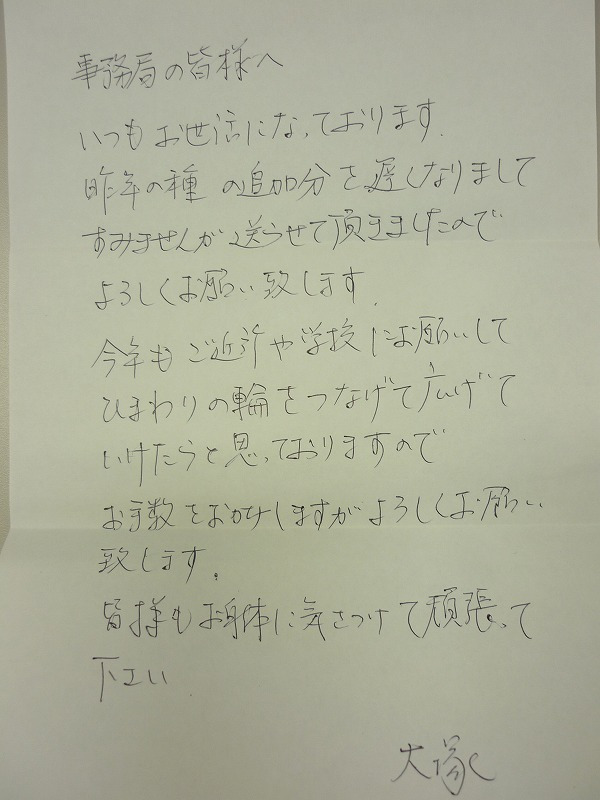 事務局の皆様へ
いつもお世話になっております.
昨年の種の追加分を遅くなりまして
すみませんが送らせて頂きましたので
よろしくお願い致します.
今年もご近所や学校にお願いして
ひまわりの輪をつなげて広げて
いけたらと思っておりますので
お手数をおかけしますがよろしくお願い
致します.
皆様もお身体に気をつけて頑張って
下さい
大塚